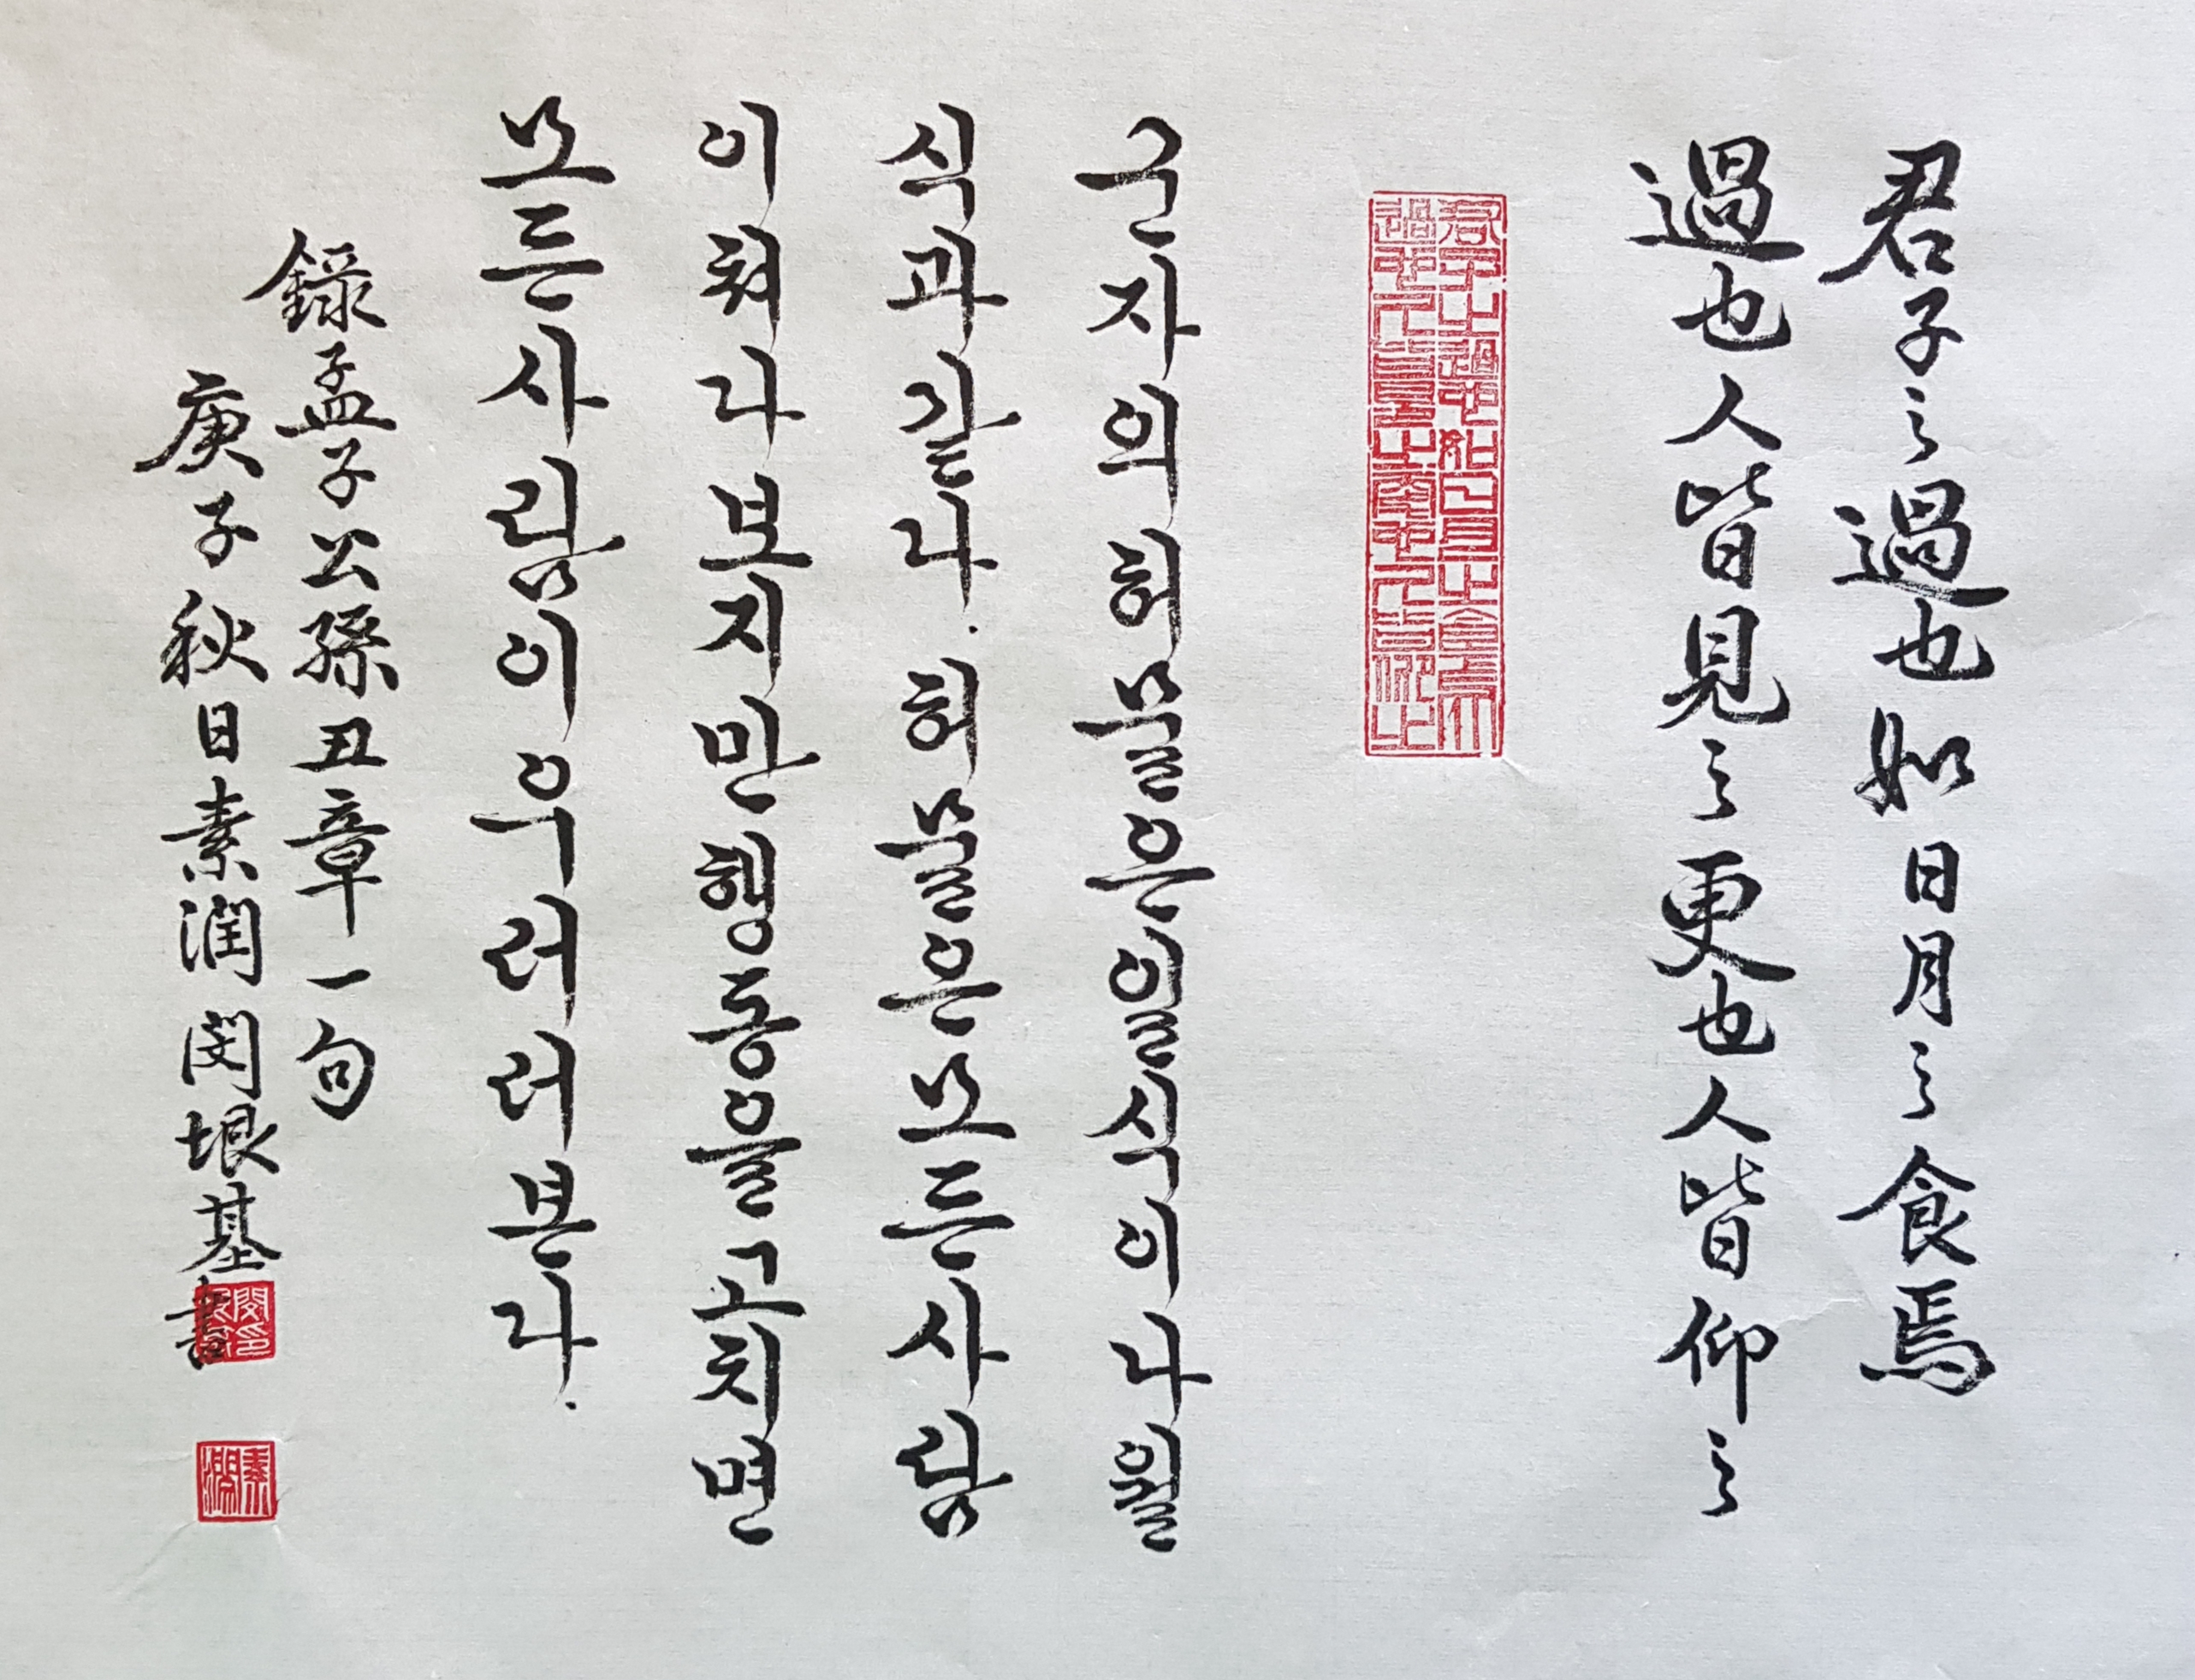 君子之過也如日月之食焉
過也人皆見之更也人皆仰之
君子之過也如日月之食焉
過也人皆見之更也人皆仰之
군자의허물은일식이나월
식과같다.허물은모든사람
이쳐다보지만행동을고치면
모든사람이우러러본다.
錄孟子公孫丑章一句
庚子秋日素潤閔垠基書
素潤